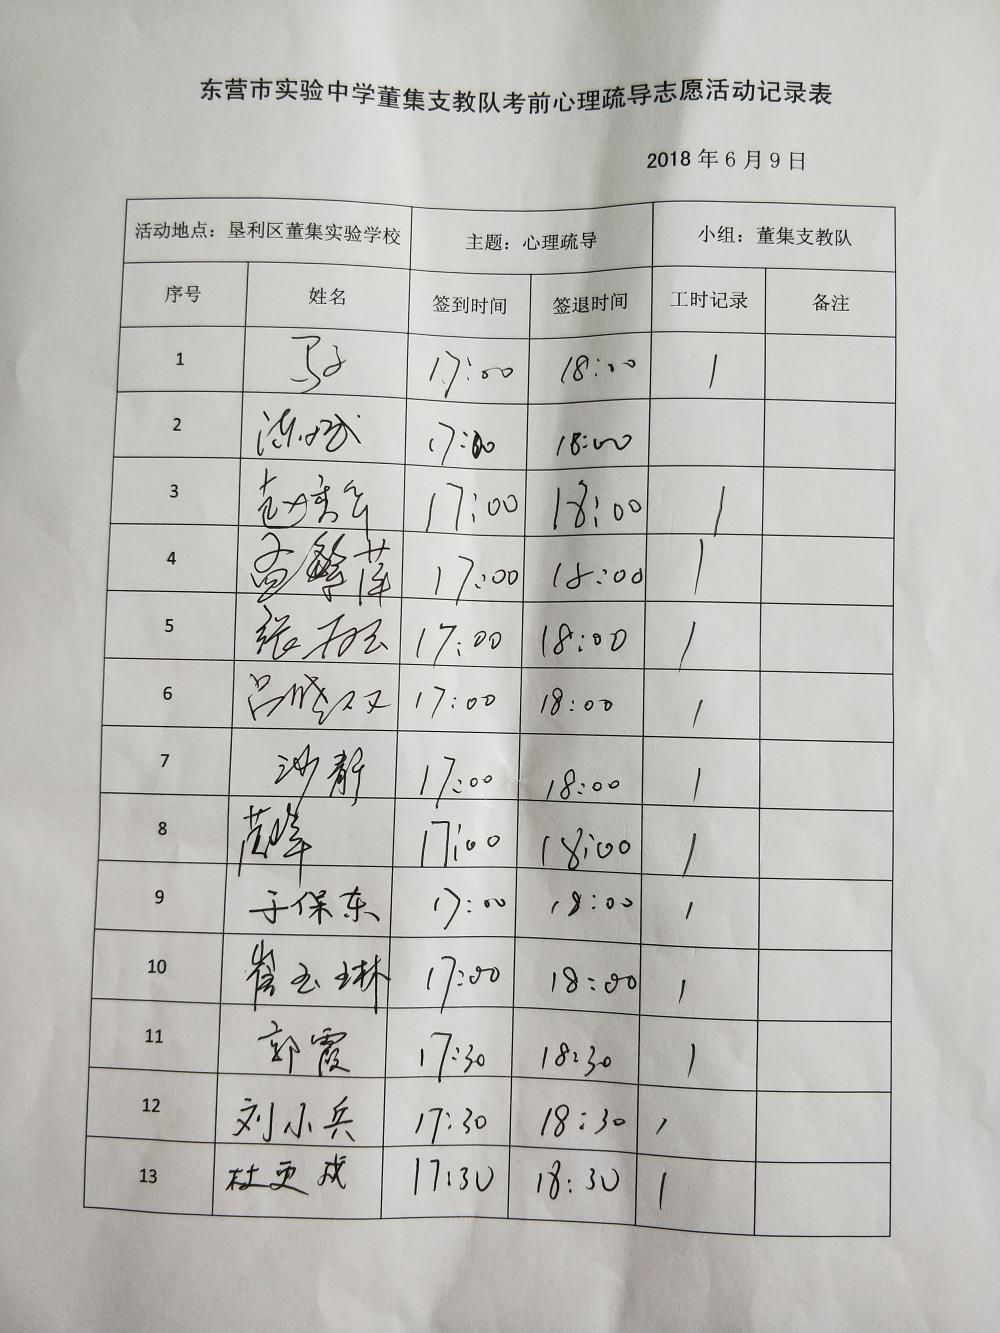 东营市实验中学董集支教队考前心理疏导志愿活动记录表
2018 年 6 月 9 日
活动地点：垦利区董集实验学校 主题：心理疏导 小组：董集支教队
序号 姓名 签到时间 签退时间 工时记录 备注
1 17:00 18:00 1
2 17:00 18:00
3 17:00 18:00 1
4 孟繁萍 17:00 18:00 1
5 17:00 18:00 1
6 吕晓双 17:00 18:00 1
7 沙静 17:00 18:00 1
8 17:00 18:00 1
9 于保东 17:00 18:00 1
10 崔玉琳 17:00 18:00 1
11 郭霞 17:30 18:30 1
12 刘小兵 17:30 18:30 1
13 杜更成 17:30 18:30 1